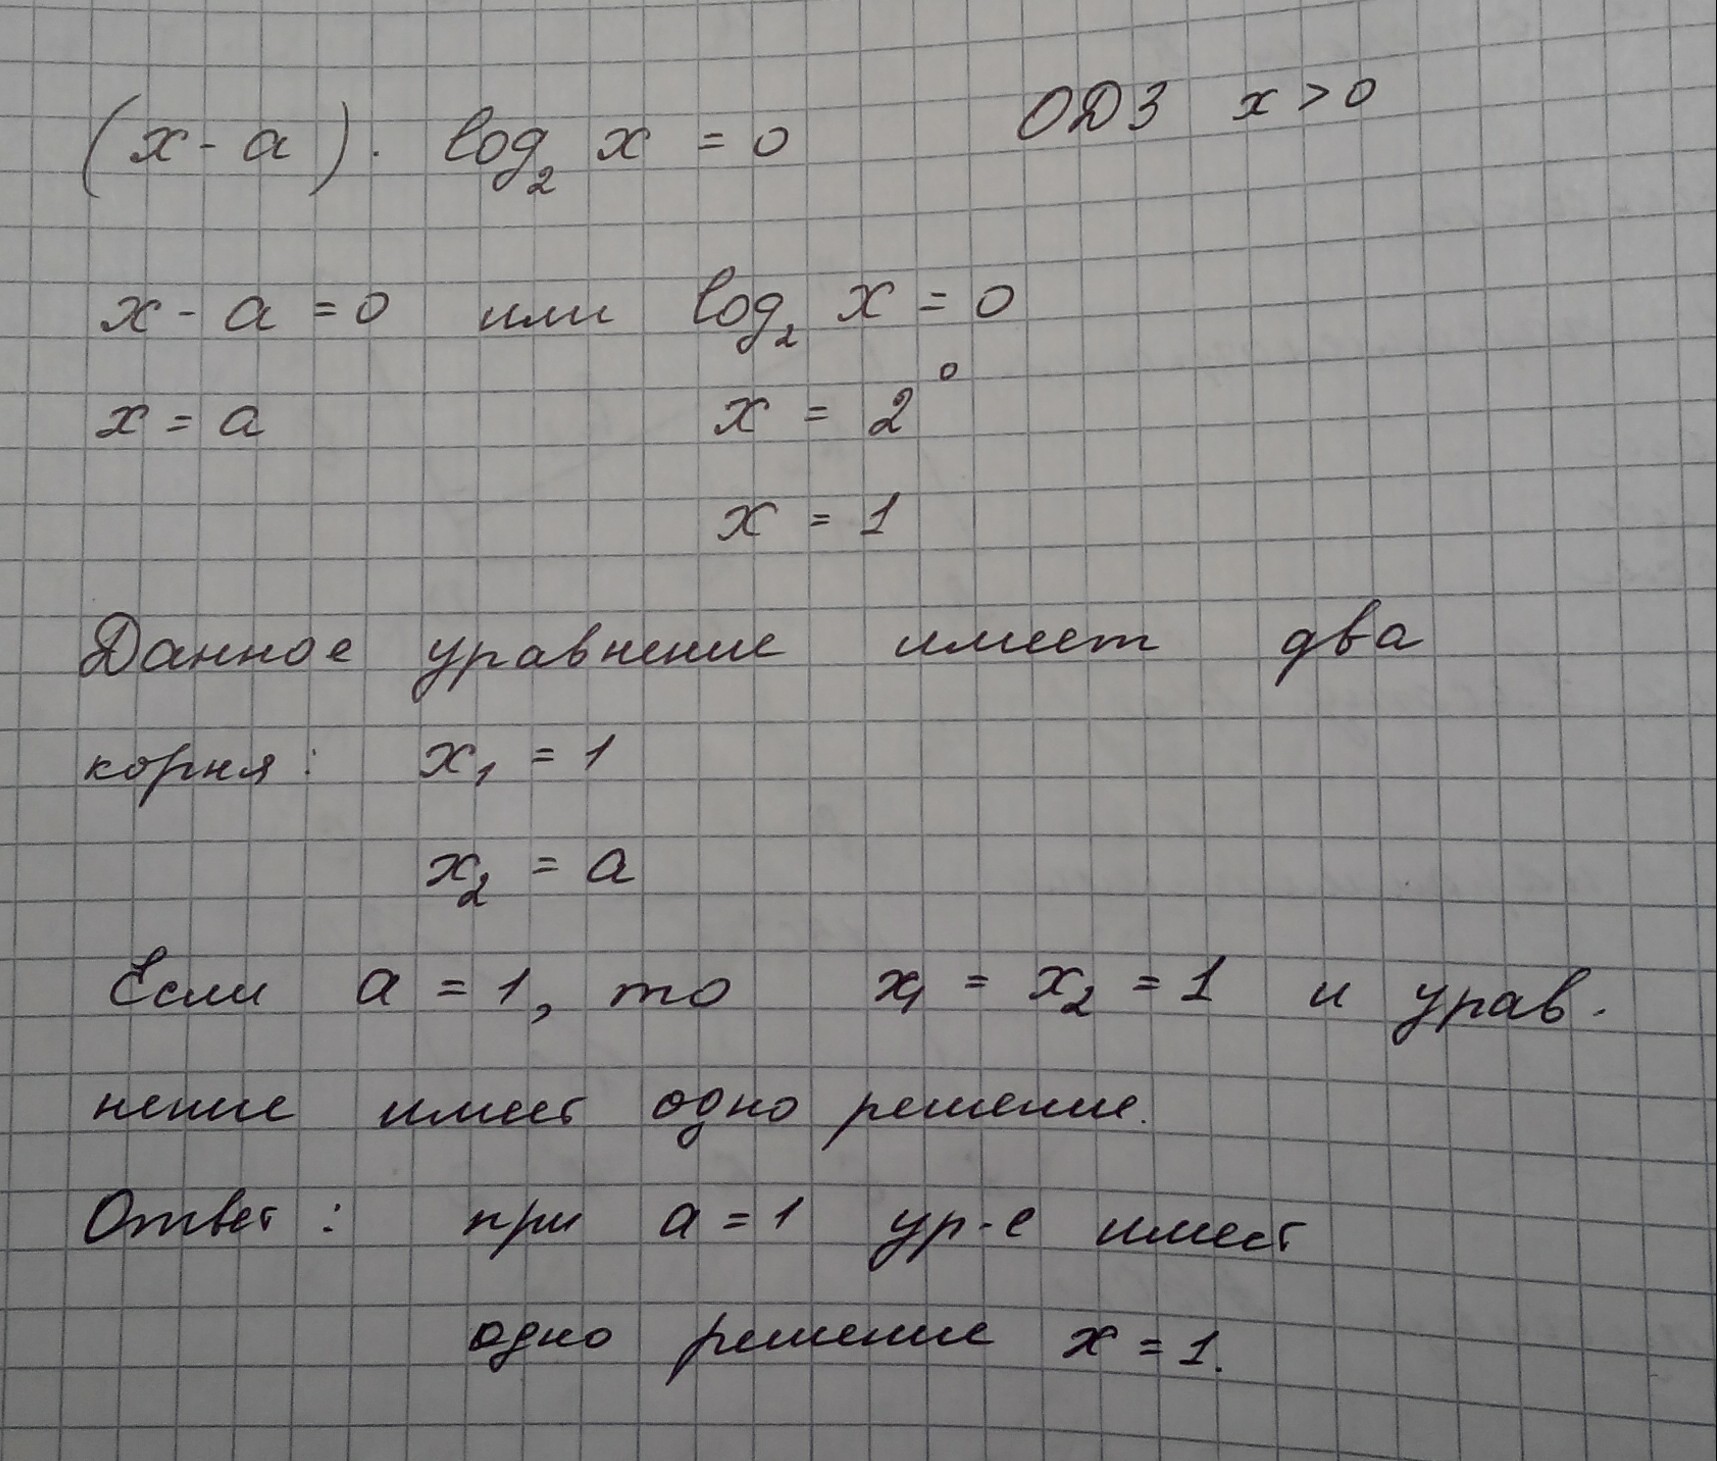 (x - a) · log₂ x = 0   ОДЗ x > 0
x - a = 0 или log₂ x = 0
x = a   x = 2⁰
x = 1
Данное уравнение имеет два
корня: x₁ = 1
x₂ = a
Если a = 1, то x₁ = x₂ = 1 и урав-
нение имеет одно решение.
Ответ: при a = 1 ур-е имеет
одно решение x = 1.